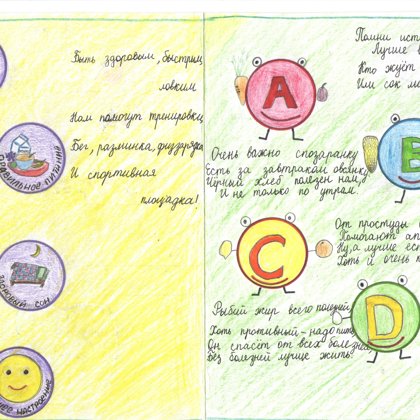 Быть здоровым, быстрым
ловким
Нам помогут тренировки
Бег, разминка, физзарядка
И спортивная
площадка!
Правильное питание
Здоровый сон
настроение
Помни
Лучше
Кто жуёт
Или сок
A
B
Очень важно спозаранку
Есть за завтраком овсянку
Чёрный хлеб полезен нам,
И не только по утрам.
C
От простуды
Помогают
Ну, а лучше
Хоть и очень
D
Рыбий жир всего полезней
Хоть противный - надо пить
Он спасёт от всех болезней
Без болезней лучше жить.